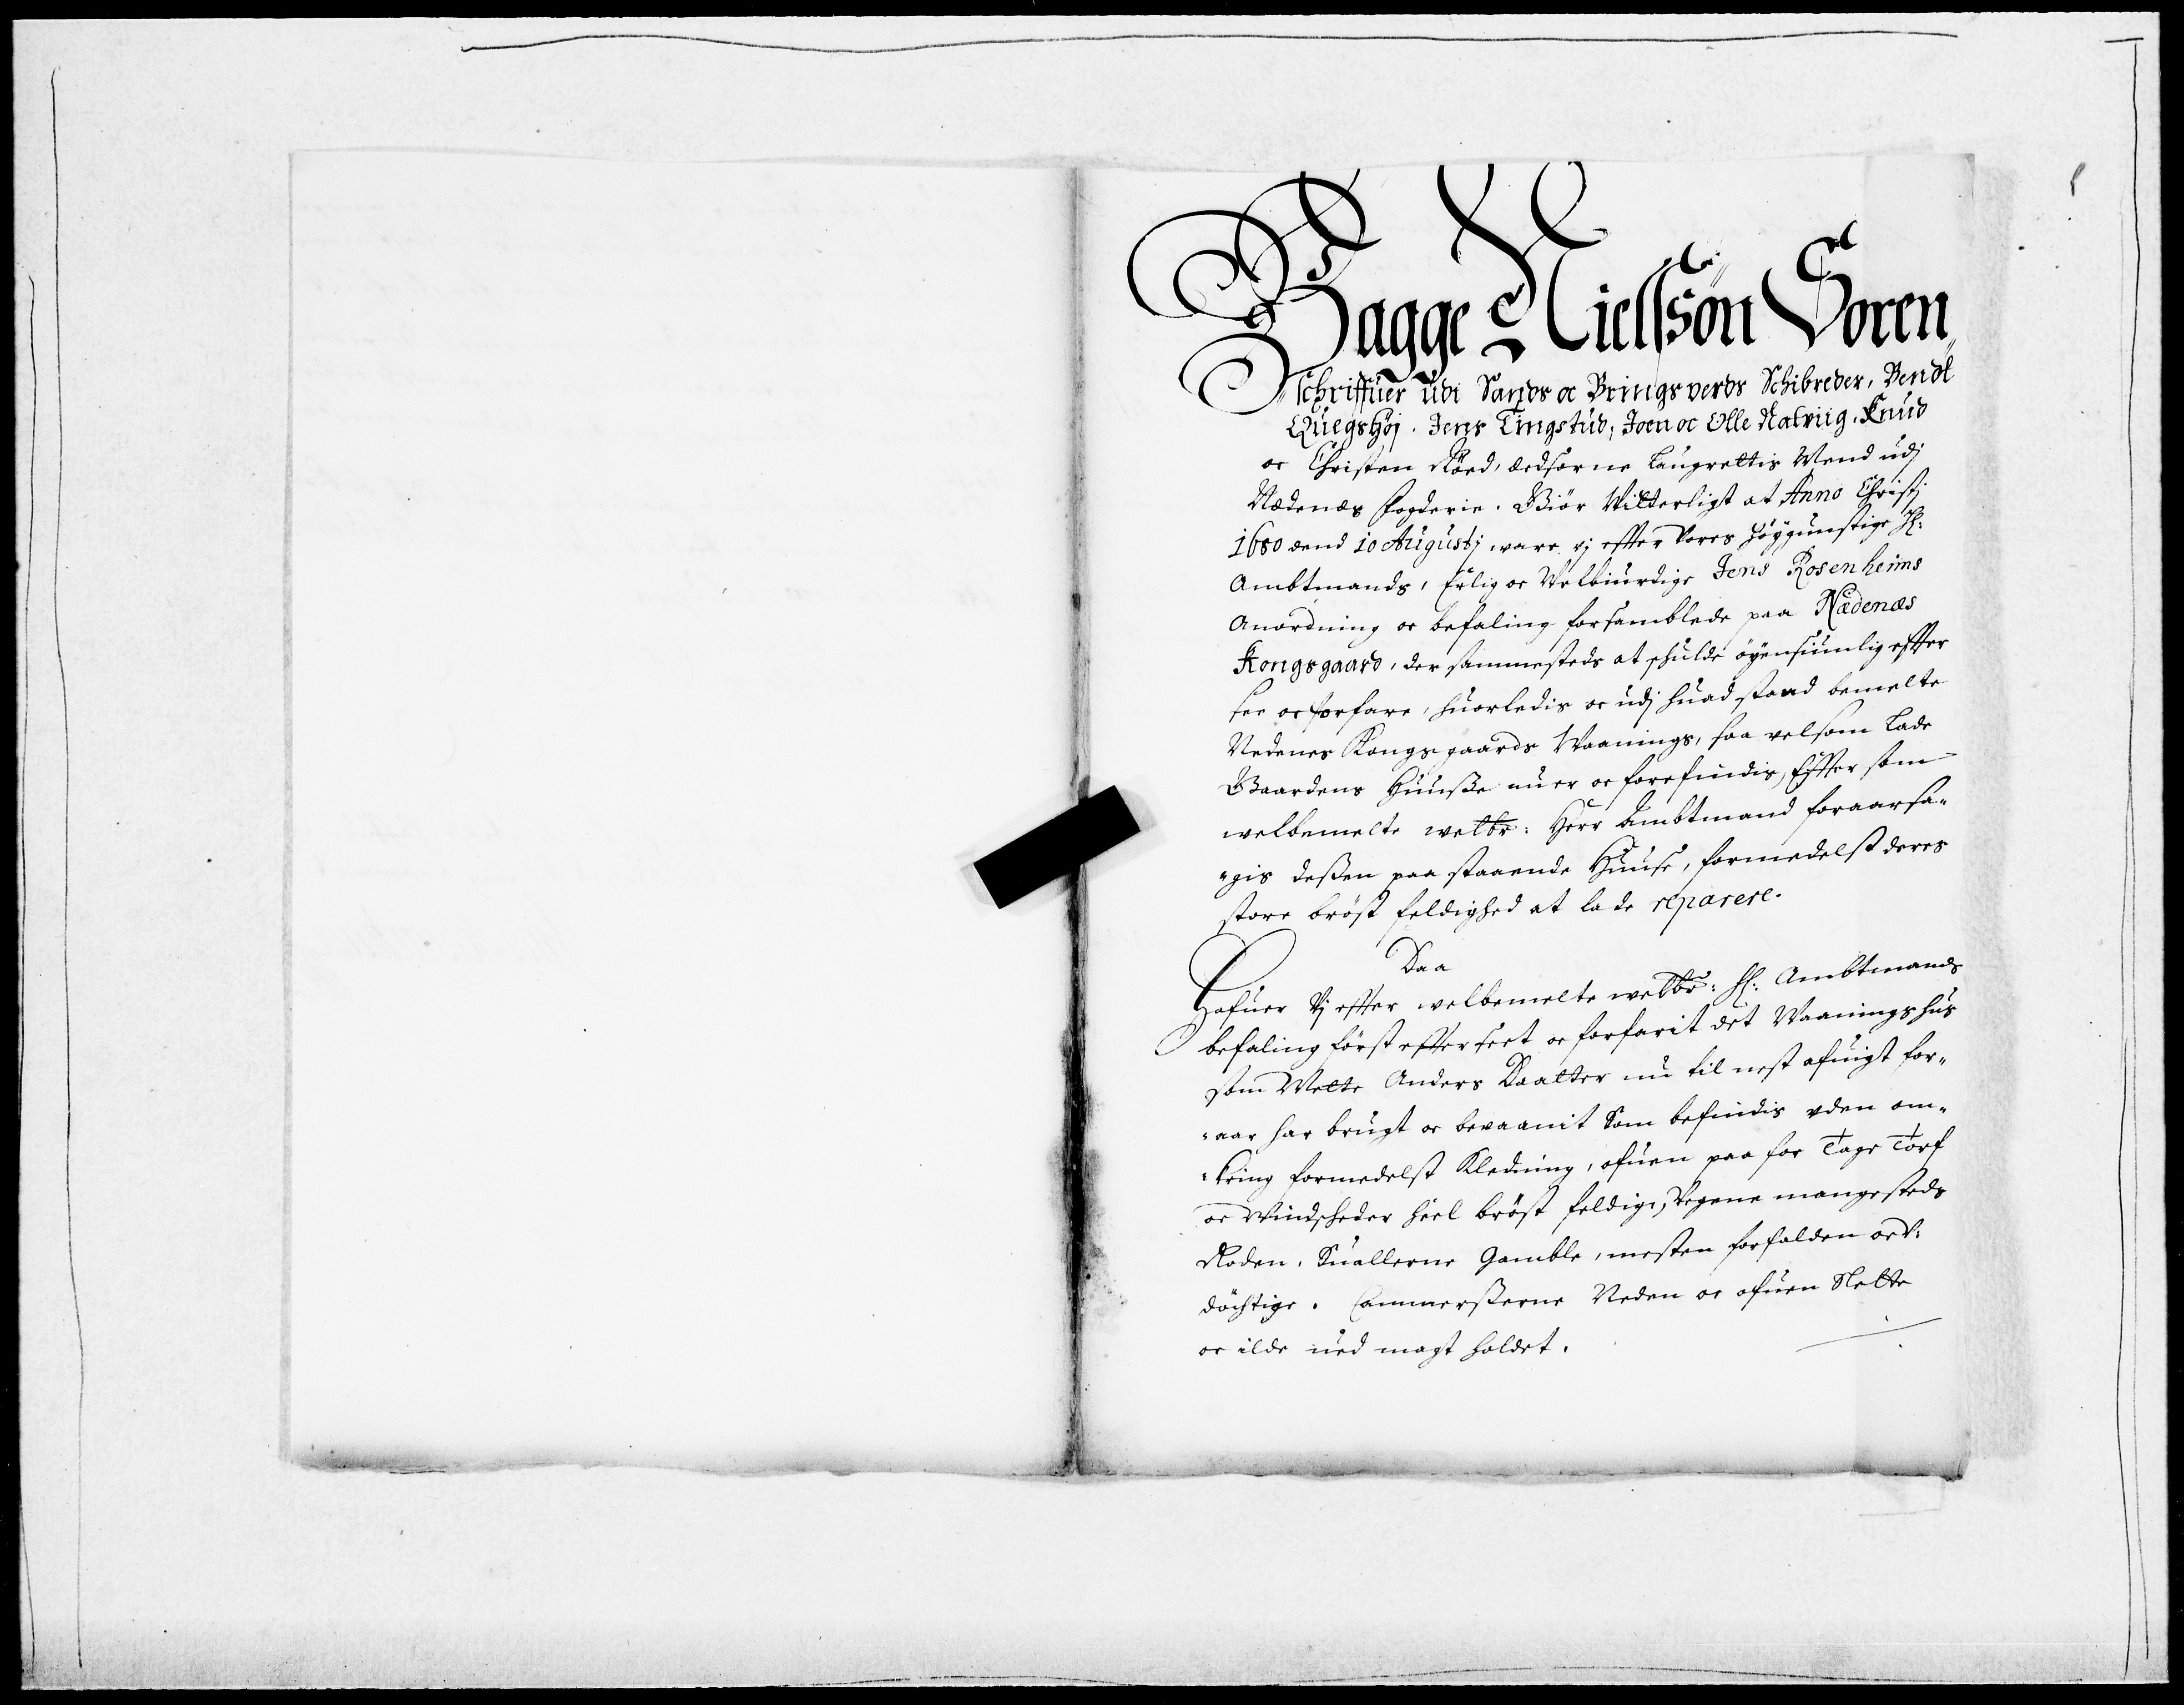 Bagge Nielssøn Soren„
„schriffuer udi Sands oc Bringsverds Schibreder, Bendt
Quegshøj. Jens Tingstud, Joen oc Olle Natviig, Knud
oc Christen Røed, ædsorne laugrettis Mend udj
Nædenæs fogderie. Giør Vitterligt at Anno Christj
1680 dend 10 Augustj ware vj effter Vores høygunstige H:
Ambtmands, Erlig oc Velbiurdige Jens Rosenheims
Anordning oc befaling forsamblede paa Nædenæs
Kongsgaard, der sammesteds at schulde øyensiunlig effter
see oc forfare, huorledis oc udj huad stand bemelte
Nedenes Kongsgaards Waanings, saa velsom lade
Gaardens Huuße nu er oc forefindis, Effter som
welbemelte welbr: Herr Ambtmand foraarsa„
„gis deßen paa staaende Huuse, formedelst deres
store brøst feldighed at lade reparere.
Daa
Hafuer Vj effter welbemelte welbr: H: Ambtmands
befaling først effter seet oc forfarit det Waaningshus
som Mette Anders Daatter nu til nest afuigt for„
„aar har brugt oc bevaanit Som befindis uden om„
„kring formedelst Kledning, ofuen paa for Tage Torf
oc Windscheder heel brøst feldige, Vegene mangesteds
Roden, Suallerne Gamble, mesten forfalden oc V:
døchtige. Cammerßerne Neden oc ofuen Slette
oc ilde ued magt holdet.